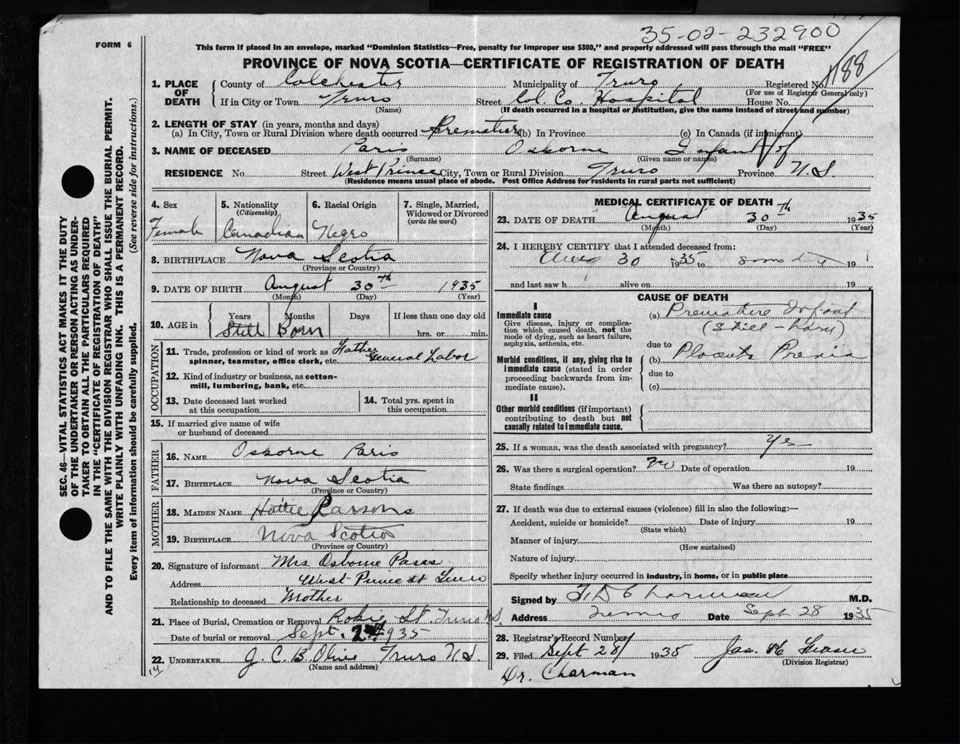 35-02-232900
FORM 6
This form if placed in an envelope, marked "Dominion Statistics—Free, penalty for improper use $300," and properly addressed will pass through the mail "FREE"
PROVINCE OF NOVA SCOTIA—CERTIFICATE OF REGISTRATION OF DEATH
1188
1. PLACE OF DEATH
County of Colchester Municipality of Truro Registered No.
(For use of Registrar General only)
If in City or Town Truro Street Col. Co. Hospital House No.
(Name) (If death occurred in a hospital or institution, give the name instead of street and number)
2. LENGTH OF STAY (in years, months and days)
(a) In City, Town or Rural Division where death occurred (b) In Province (c) In Canada (if immigrant)
3. NAME OF DECEASED Paris Osborne Infant of
(Surname) (Given name or names)
RESIDENCE No. Street West Prince City, Town or Rural Division Truro Province N.S.
(Residence means usual place of abode. Post Office Address for residents in rural parts not sufficient)
4. Sex
Female
5. Nationality
(Citizenship)
Canadian
6. Racial Origin
Negro
7. Single, Married, Widowed or Divorced
(write the word)
8. BIRTHPLACE Nova Scotia
(Province or Country)
9. DATE OF BIRTH August 30th 1935
(Month) (Day) (Year)
10. AGE in Years Months Days If less than one day old
Still Born hrs. or min.
OCCUPATION
11. Trade, profession or kind of work as Father General Labor
spinner, teamster, office clerk, etc.
12. Kind of industry or business, as cotton-
mill, lumbering, bank, etc.
13. Date deceased last worked
at this occupation
14. Total yrs. spent in
this occupation
15. If married give name of wife
or husband of deceased
FATHER
16. NAME Osborne Paris
17. BIRTHPLACE Nova Scotia
(Province or Country)
MOTHER
18. MAIDEN NAME Hattie Parsons
19. BIRTHPLACE Nova Scotia
(Province or Country)
20. Signature of informant Mrs Osborne Paris
Address West Prince st Truro
Relationship to deceased Mother
21. Place of Burial, Cremation or Removal Robie St. Truro N.S.
Date of burial or removal Sept. 2nd 1935
22. UNDERTAKER J. C. B. Olive Truro N.S.
(Name and address)
MEDICAL CERTIFICATE OF DEATH
23. DATE OF DEATH August 30th 1935
(Month) (Day) (Year)
24. I HEREBY CERTIFY that I attended deceased from:
Aug 30 1935 to 19
and last saw h alive on 19
CAUSE OF DEATH
I
Immediate cause
Give disease, injury or complication which caused death, not the mode of dying, such as heart failure, asphyxia, asthenia, etc.
(a) Premature Infant
(Still-born)
due to
Morbid conditions, if any, giving rise to immediate cause (stated in order proceeding backwards from immediate cause).
(b) Placenta Previa
due to
(c)
II
Other morbid conditions (if important) contributing to death but not causally related to immediate cause.
25. If a woman, was the death associated with pregnancy? Yes
26. Was there a surgical operation? No Date of operation 19
State findings Was there an autopsy?
27. If death was due to external causes (violence) fill in also the following:—
Accident, suicide or homicide? Date of injury 19
(State which)
Manner of injury
(How sustained)
Nature of injury
Specify whether injury occurred in industry, in home, or in public place
Signed by Charman M.D.
Address Truro Date Sept 28 1935
28. Registrar's Record Number
29. Filed Sept 28 1935 Jas.
(Division Registrar)
Dr. Charman
SEC. 46—VITAL STATISTICS ACT MAKES IT THE DUTY
OF THE UNDERTAKER OR PERSON ACTING AS UNDER-
TAKER TO OBTAIN ALL THE PARTICULARS REQUIRED
IN THE "CERTIFICATE OF REGISTRATION OF DEATH"
AND TO FILE THE SAME WITH THE DIVISION REGISTRAR WHO SHALL ISSUE THE BURIAL PERMIT.
WRITE PLAINLY WITH UNFADING INK. THIS IS A PERMANENT RECORD.
Every item of information should be carefully supplied. (See reverse side for instructions.)